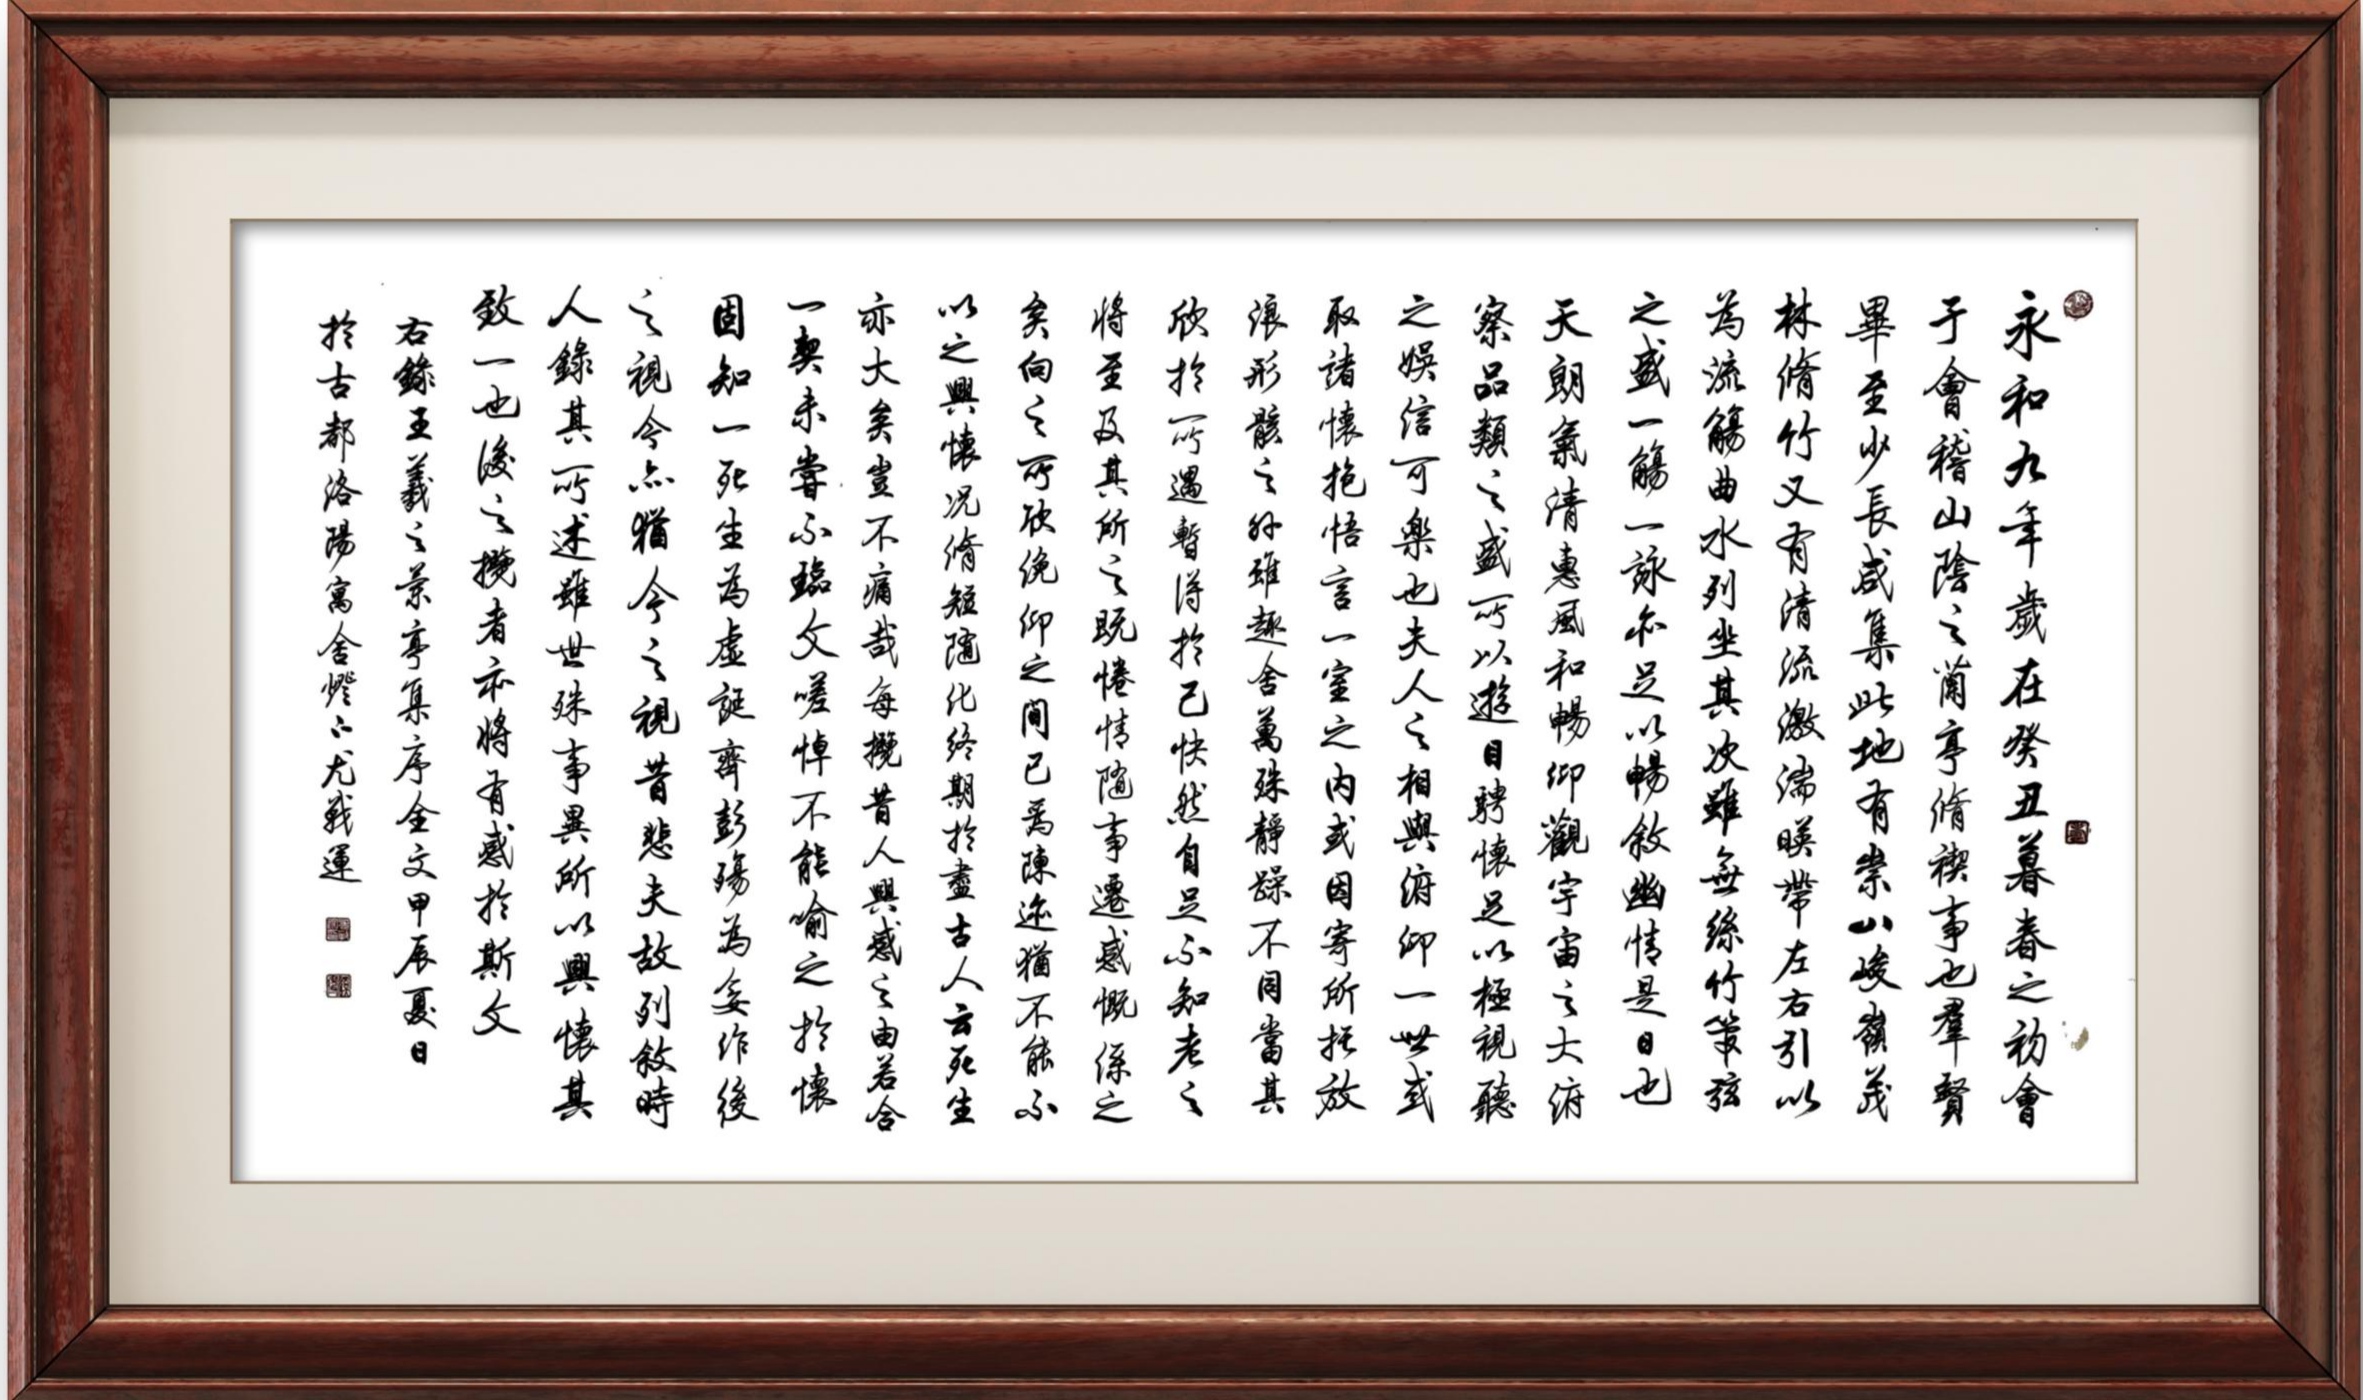 永和九年歲在癸丑暮春之初會
于會稽山陰之蘭亭脩禊事也羣賢
畢至少長咸集此地有崇山峻嶺茂
林脩竹又有清流激湍暎帶左右引以
為流觴曲水列坐其次雖無絲竹管弦
之盛一觴一詠亦足以暢敘幽情是日也
天朗氣清惠風和暢仰觀宇宙之大俯
察品類之盛所以遊目騁懷足以極視聽
之娛信可樂也夫人之相與俯仰一世或
取諸懷抱悟言一室之內或因寄所托放
浪形骸之外雖趣舍萬殊靜躁不同當其
欣於所遇暫得於己快然自足不知老之
將至及其所之既惓情隨事遷感慨係之
矣向之所欣俛仰之間已為陳迹猶不能不
以之興懷況脩短隨化終期於盡古人云死生
亦大矣豈不痛哉每攬昔人興感之由若合
一契未嘗不臨文嗟悼不能喻之於懷
固知一死生為虛誕齊彭殤為妄作後
之視今亦猶今之視昔悲夫故列敘時
人錄其所述雖世殊事異所以興懷其
致一也後之攬者亦將有感於斯文
右錄王羲之蘭亭集序全文甲辰夏日
於古都洛陽寓舍燈下尤戰運